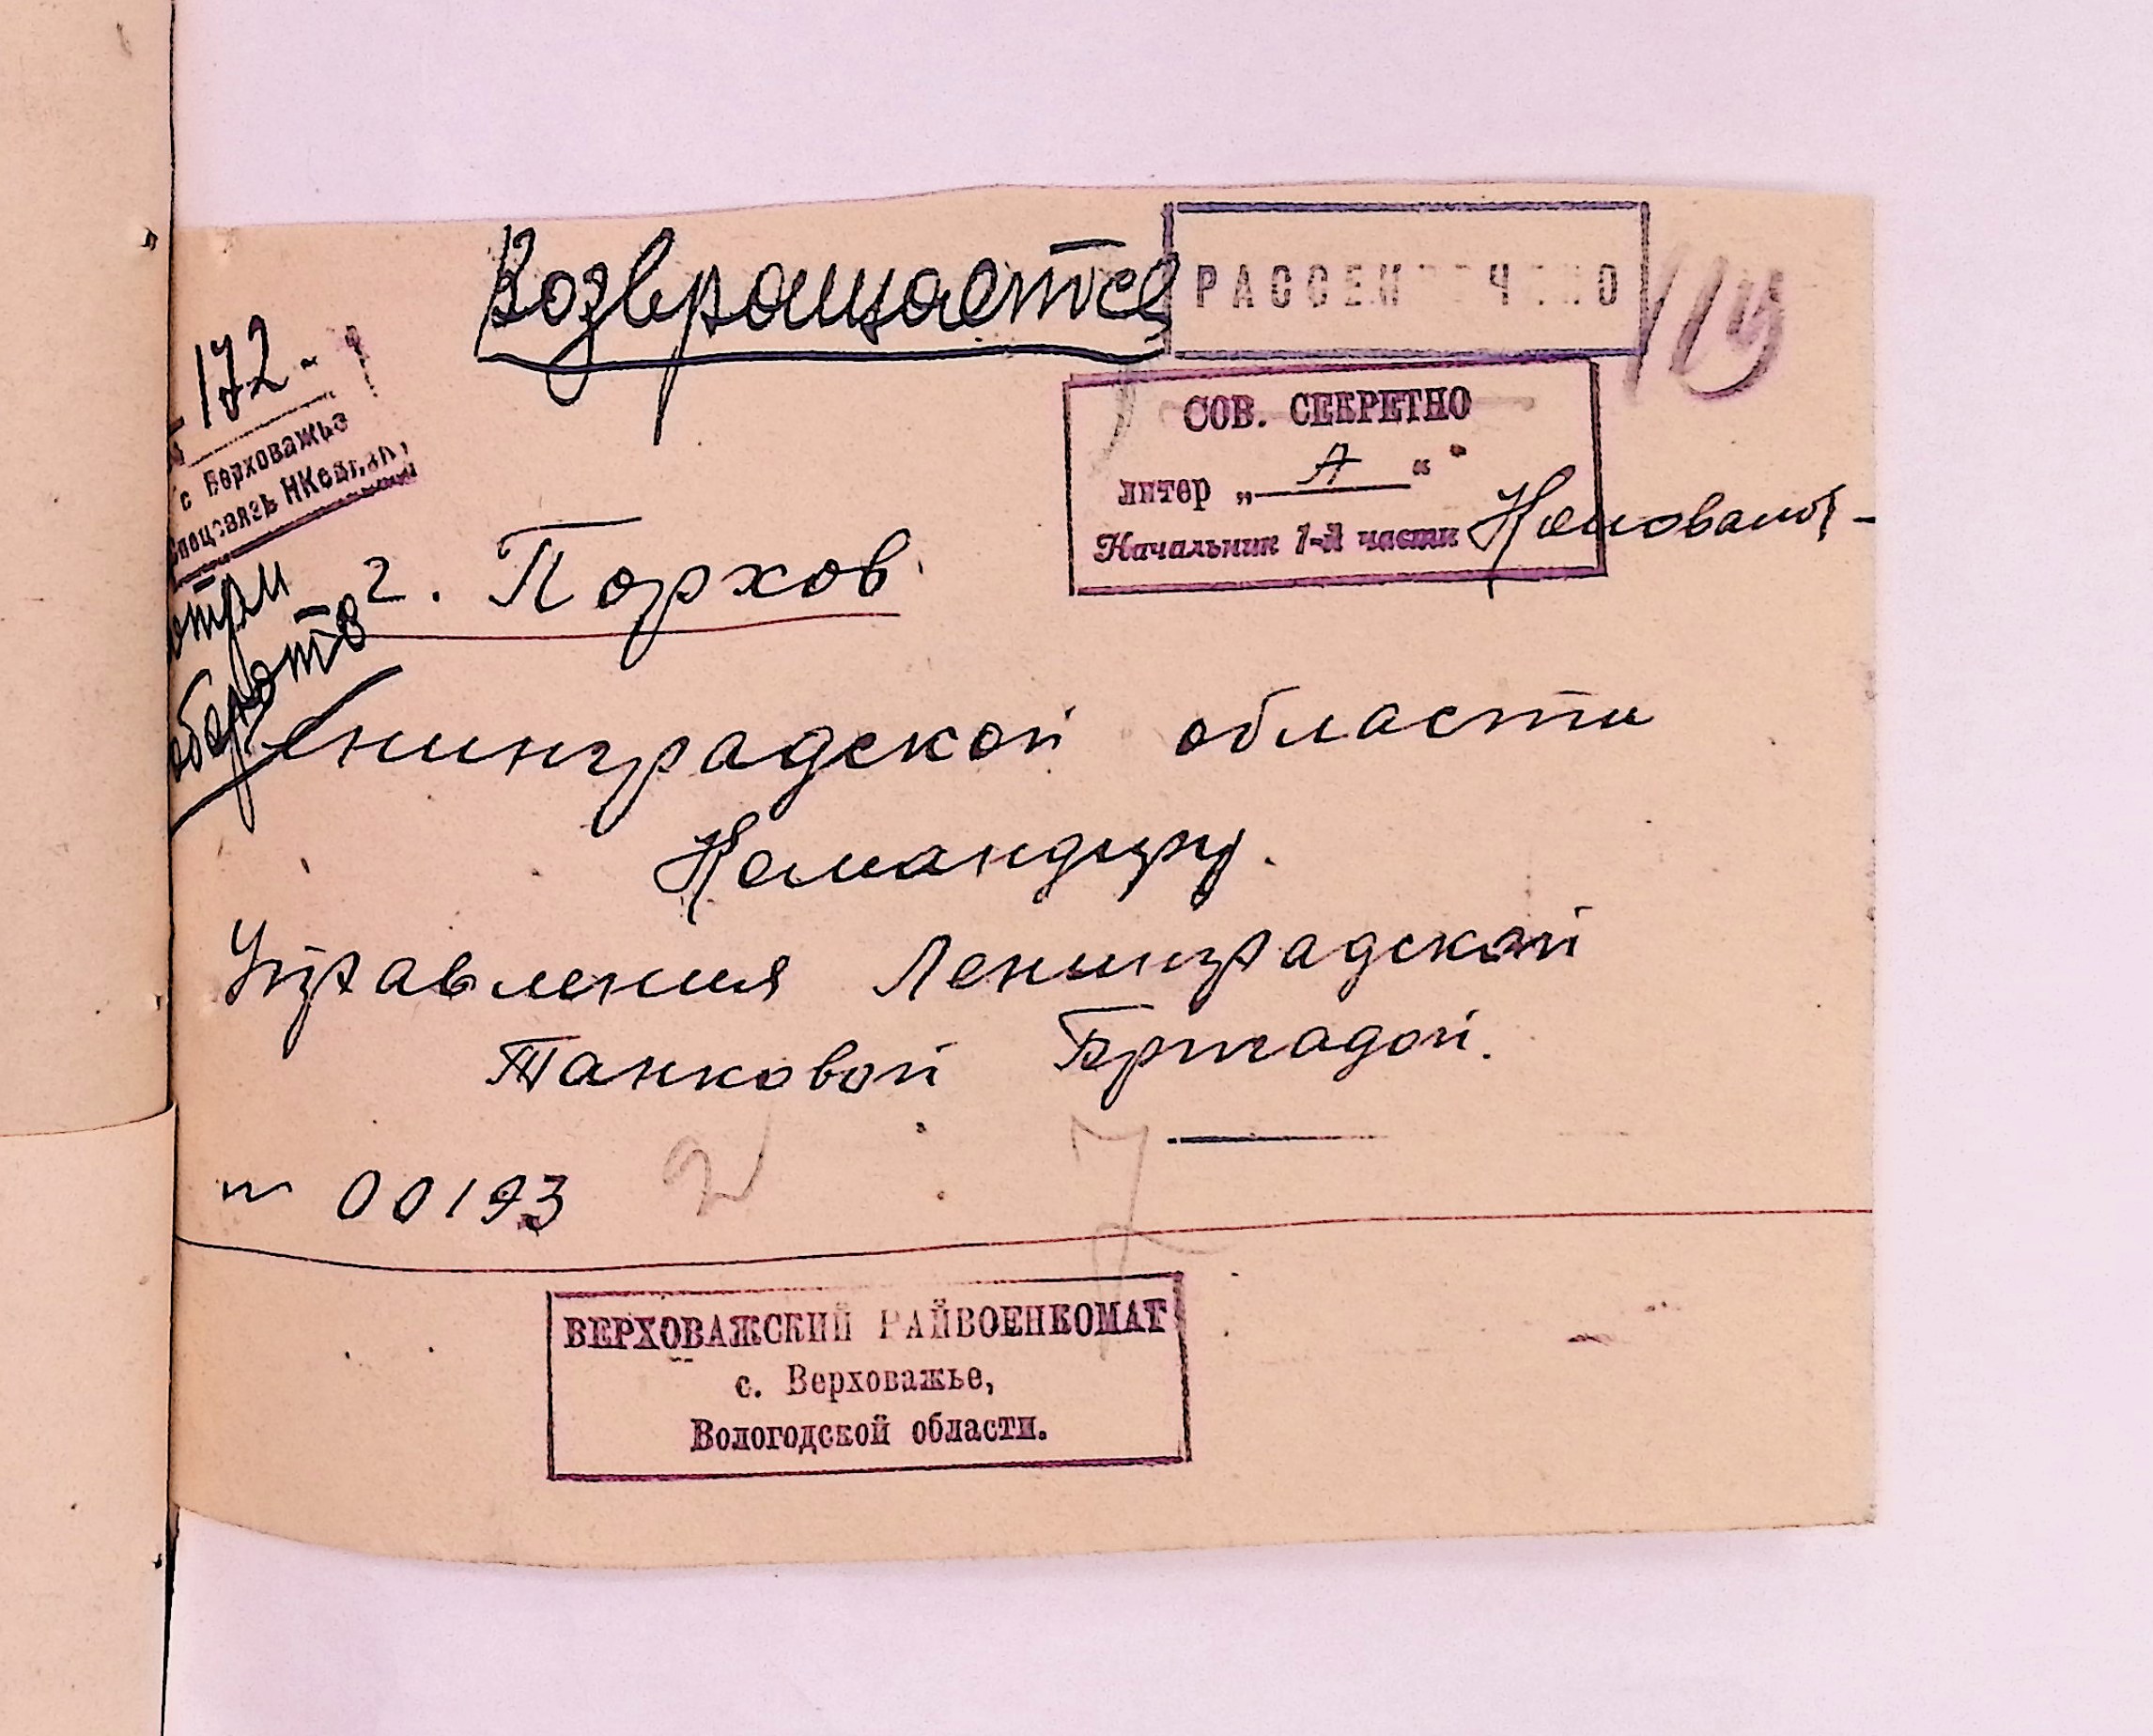 Возвращается
РАССЕК ЧЕНО
СОВ. СЕКРЕТНО
литер „ А “
Начальник 1-й части
172-
с Верховажье
спецсвязь НКсвязи
отри
обороте
г. Порхов.
Ленинградской области
Командиру.
Управления Ленинградской
Танковой Бригадой.
№ 00193
2 7
ВЕРХОВАЖСКИЙ РАЙВОЕНКОМАТ
с. Верховажье,
Вологодской области.